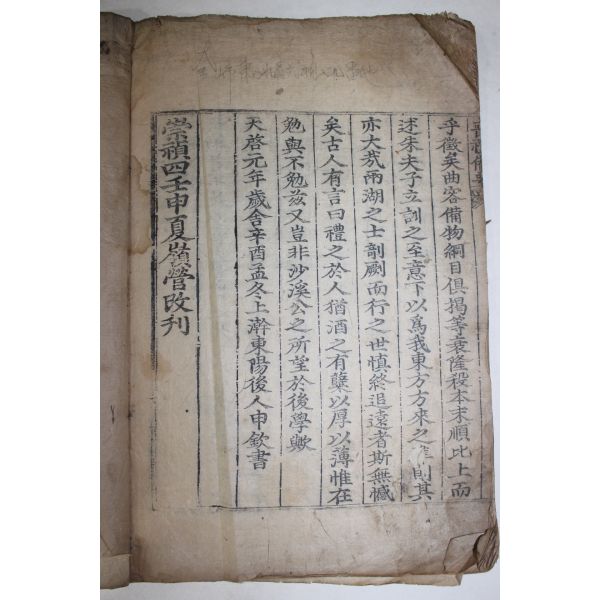 乎徵矣曲容備物綱目俱揭等衰隆殺本末順比上而
述朱夫子立訓之至意下以爲我東方方來之準則其
亦大哉兩湖之士剞劂而行之世愼終追遠者斯無憾
矣古人有言曰禮之於人猶酒之有糱以厚以薄惟在
勉與不勉玆又豈非沙溪公之所望於後學歟
天啓元年歲舍辛酉孟冬上澣東陽後人申欽書
崇禎四壬申夏嶺營改刊